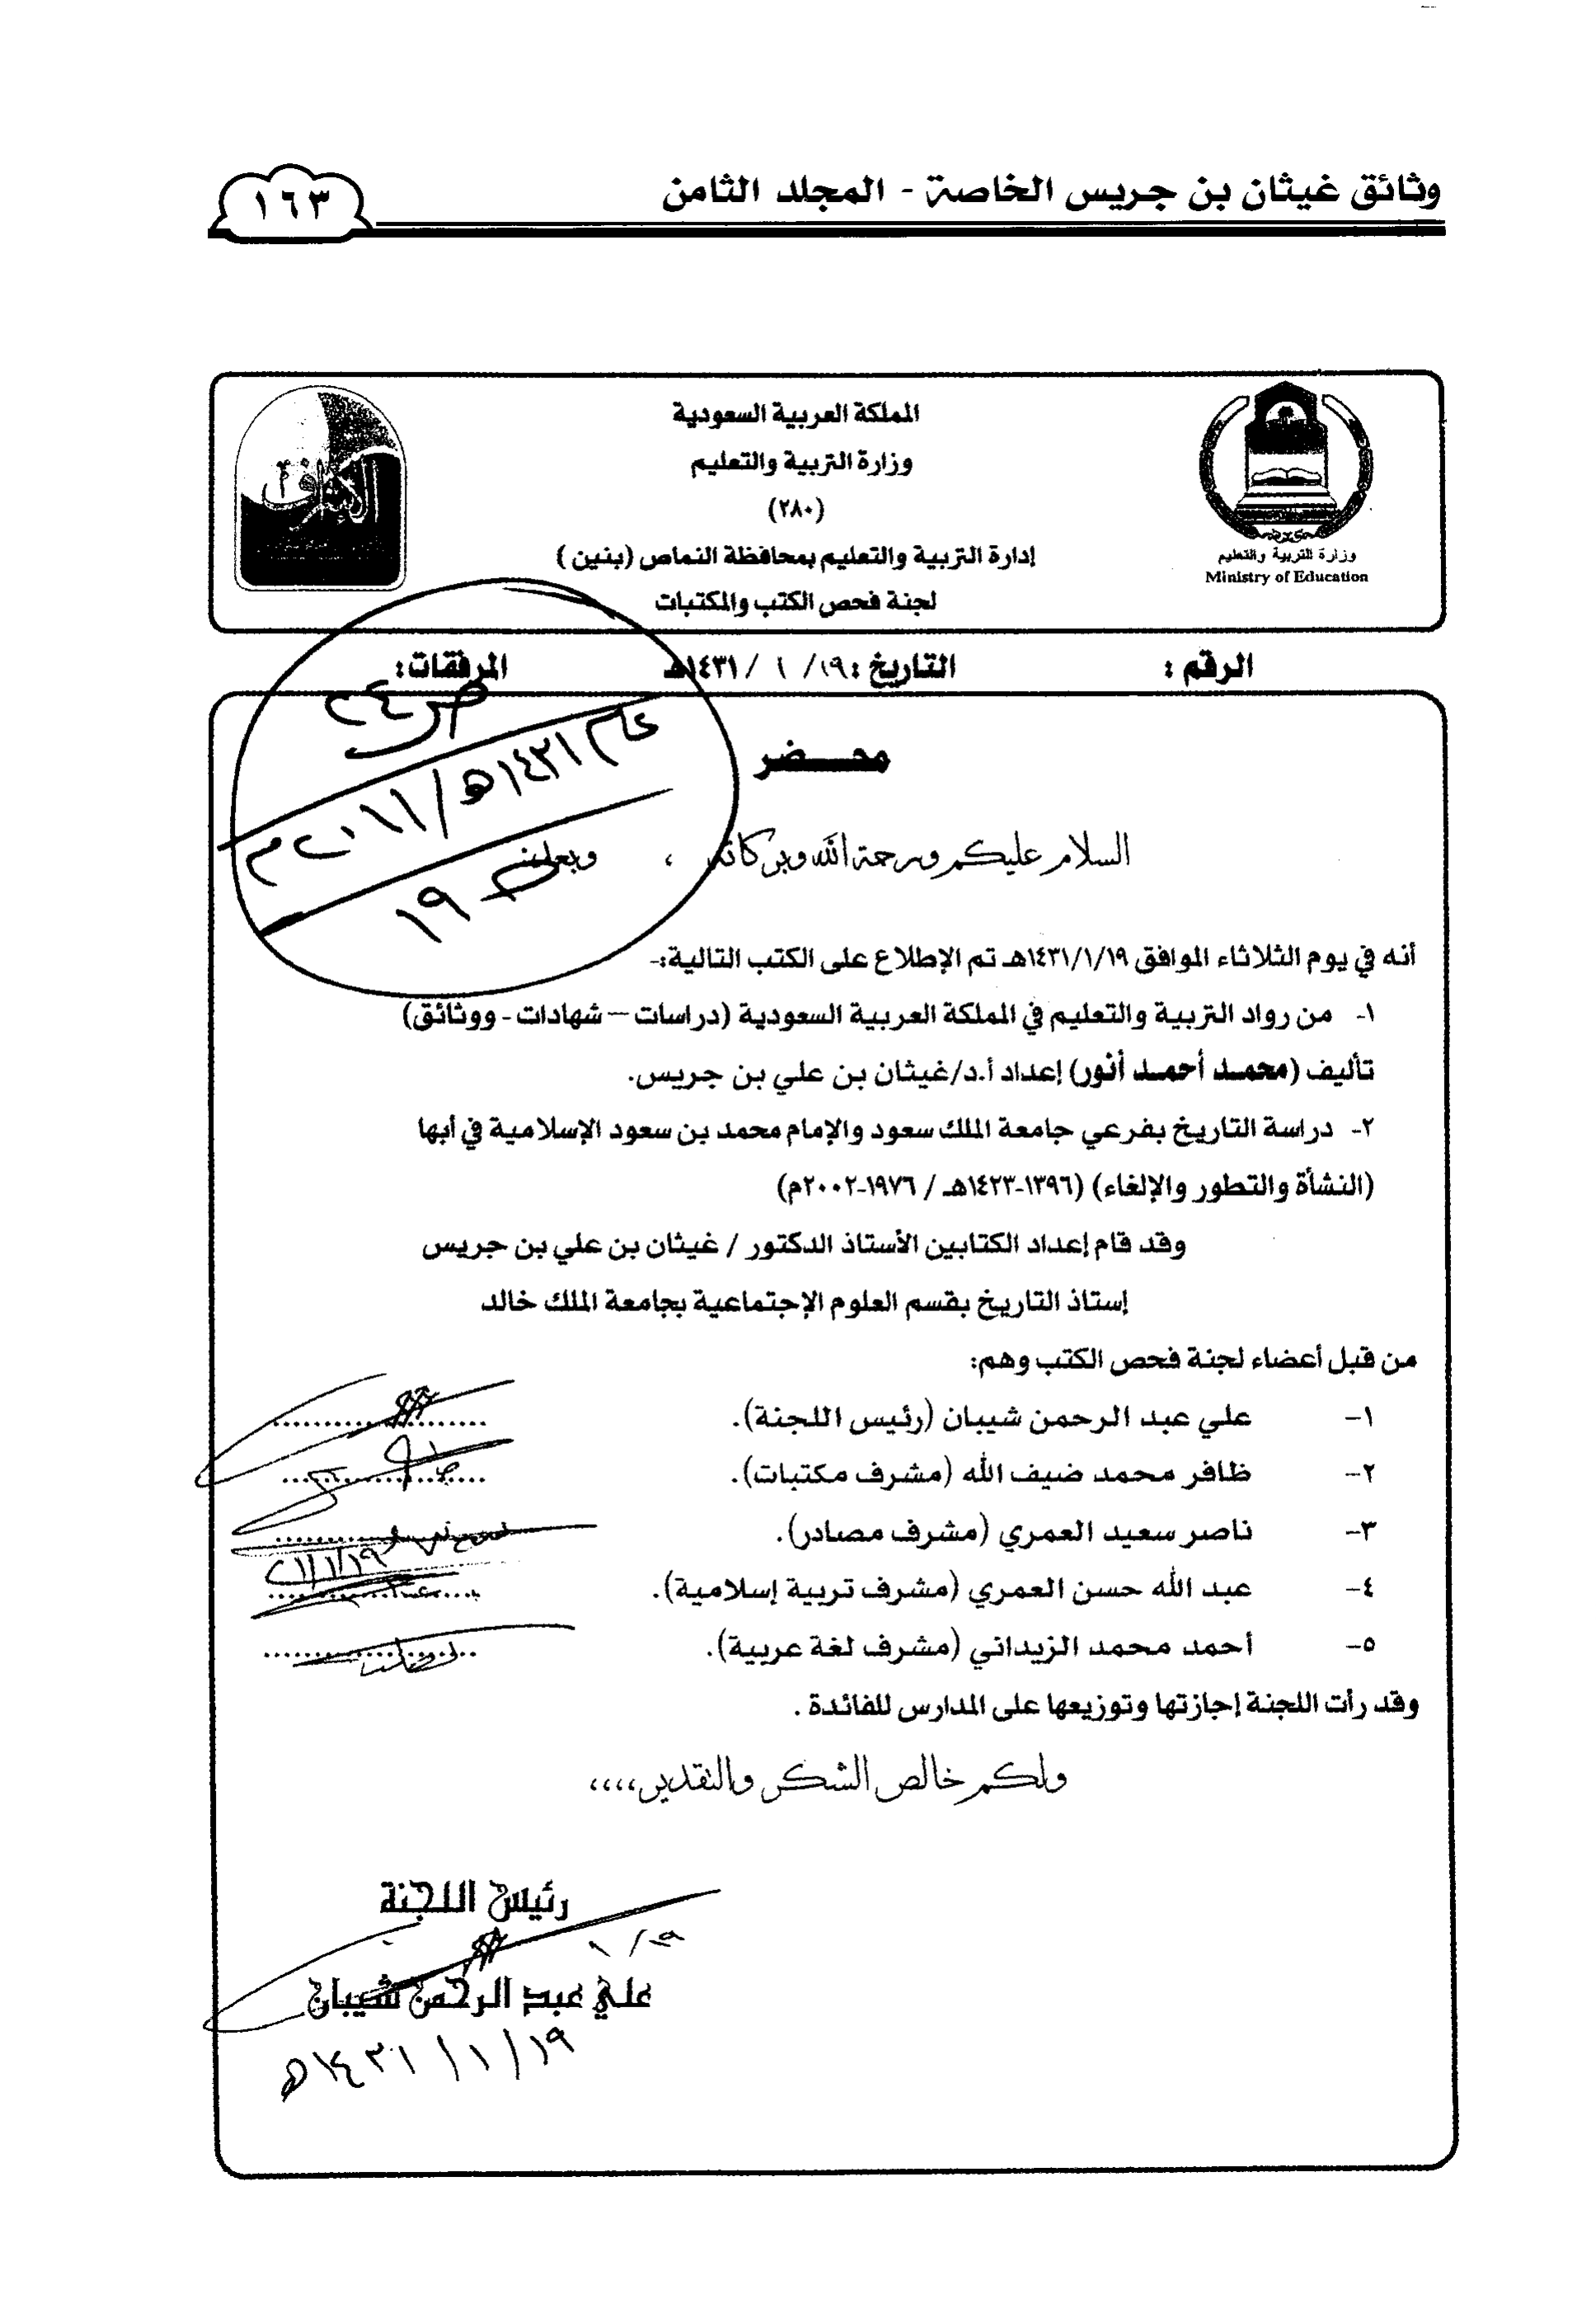 وثائق غيثان بن جريس الخاصة - المجلد الثامن
١٦٣
المملكة العربية السعودية
وزارة التربية والتعليم
(٢٨٠)
إدارة التربية والتعليم بمحافظة النماص (بنين)
لجنة فحص الكتب والمكتبات
وزارة التربية والتعليم
Ministry of Education
الإشراف
الرقم : التاريخ : ١٩/ ١ /١٤٣١هـ المرفقات:
عام ١٤٣١هـ/ ٢٠١١م
١٩
محـــضر
السلام عليكم ورحمة الله وبركاته ، وبعد
أنه في يوم الثلاثاء الموافق ١٤٣١/١/١٩هـ تم الإطلاع على الكتب التالية:-
١- من رواد التربية والتعليم في المملكة العربية السعودية (دراسات – شهادات - ووثائق)
تأليف (محمد أحمد أنور) إعداد أ.د/غيثان بن علي بن جريس.
٢- دراسة التاريخ بفرعي جامعة الملك سعود والإمام محمد بن سعود الإسلامية في أبها
(النشأة والتطور والإلغاء) (١٣٩٦-١٤٢٣هـ / ١٩٧٦-٢٠٠٢م)
وقد قام إعداد الكتابين الأستاذ الدكتور / غيثان بن علي بن جريس
إستاذ التاريخ بقسم العلوم الإجتماعية بجامعة الملك خالد
من قبل أعضاء لجنة فحص الكتب وهم:
١- علي عبد الرحمن شيبان (رئيس اللجنة). ....................
٢- ظافر محمد ضيف الله (مشرف مكتبات). ....................
٣- ناصر سعيد العمري (مشرف مصادر). ....................
٤- عبد الله حسن العمري (مشرف تربية إسلامية). ....................
٥- أحمد محمد الزيداني (مشرف لغة عربية). ....................
وقد رأت اللجنة إجازتها وتوزيعها على المدارس للفائدة .
ولكم خالص الشكر والتقدير،،،،
رئيس اللجنة
١/١٩
علي عبد الرحمن شيبان
١٩/ ١/ ١٤٣١هـ